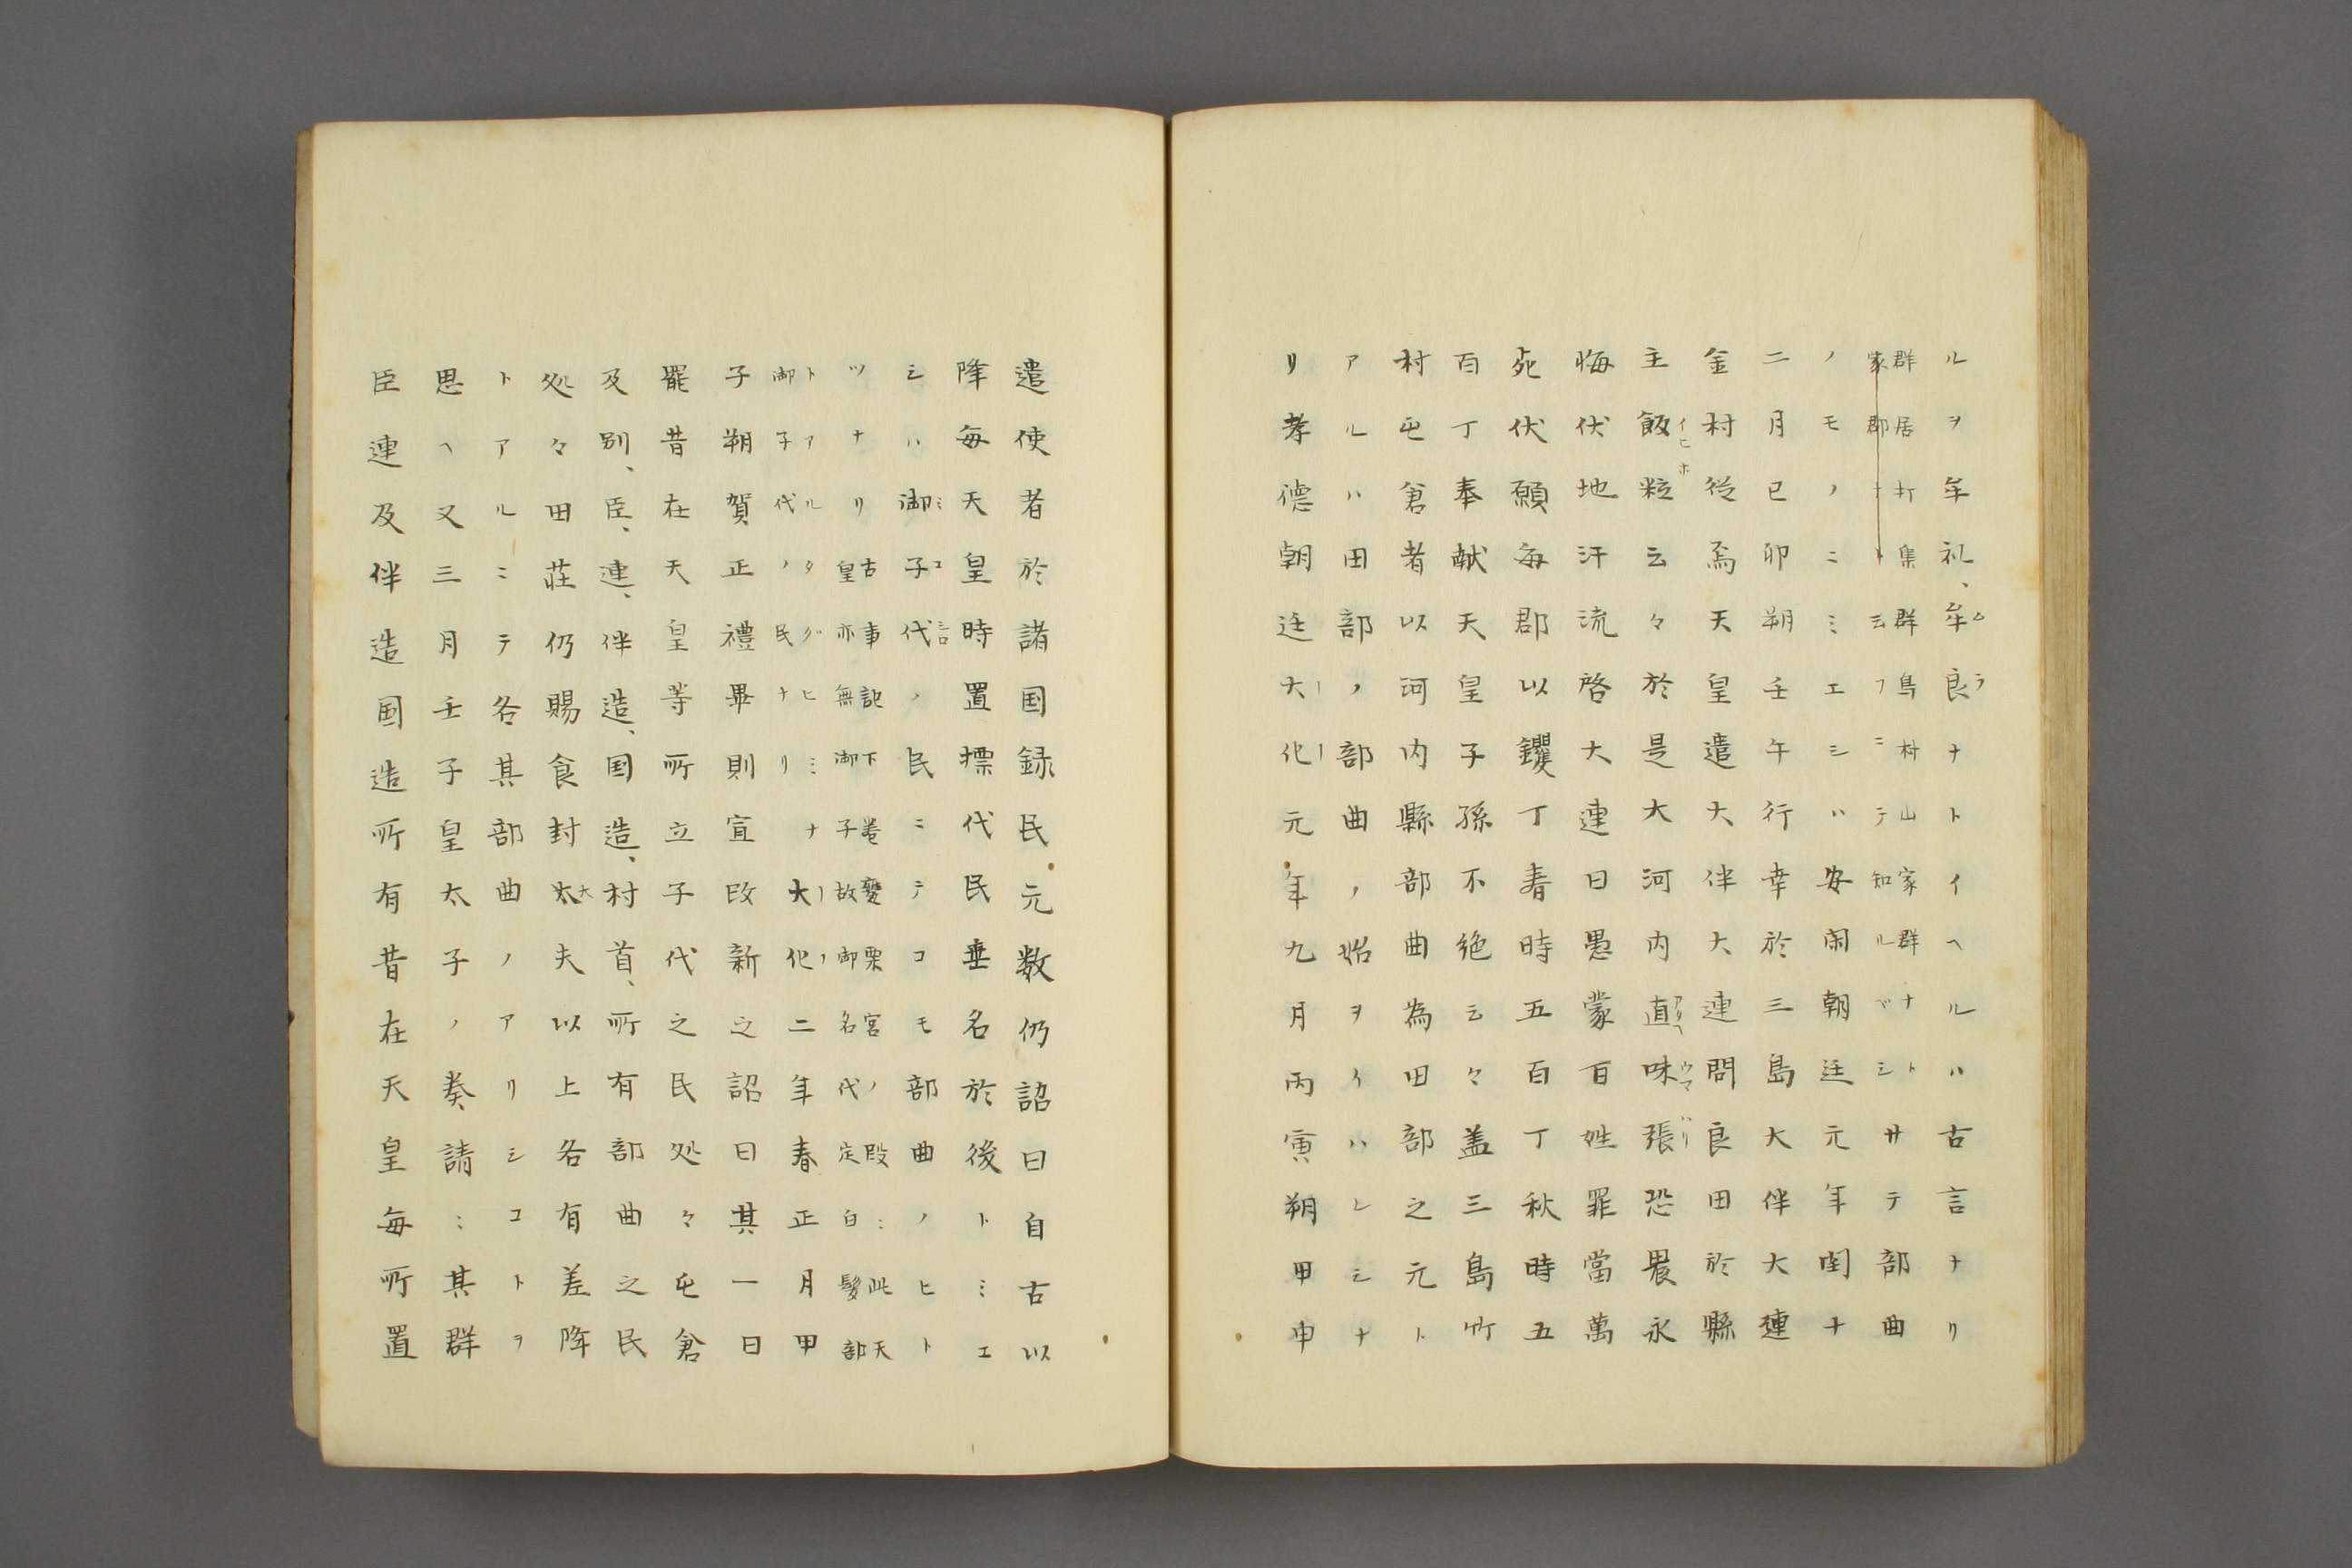 ルヲ牟礼、牟良ナトイヘルハ古言ナリ
群居村集群島村山家群ナト
家郡ナト云フニテ知ルベシ
サテ部曲
ノモノニミエシハ安閑朝廷元年閏十
二月己卯朔壬午行幸於三島大伴大連
金村従焉天皇遣大伴大連問良田於縣
主飯粒云々於是大河内直味張恐畏永
悔伏地汗流啓大連曰愚蒙百姓罪當萬
死伏願毎郡以钁丁春時五百丁秋時五
百丁奉献天皇子孫不絶云々盖三島竹
村屯倉者以河内縣部曲為田部之元ト
アルハ田部ノ部曲ノ始ヲイハレシナ
リ孝徳朝廷大化元年九月丙寅朔甲申
遣使者於諸国録民元数仍詔曰自古以
降毎天皇時置標代民垂名於後トミエ
シハ御子代ノ民ニテコモ部曲ノヒト
ツナリ
古事記下巻甕栗宮ノ段ニ此天
皇亦無御子故御名代定白髪部
トアルタグヒミナ
御子代ノ民ナリ
大化二年春正月甲
子朔賀正禮畢則宣改新之詔曰其一曰
罷昔在天皇等所立子代之民処々屯倉
及別、臣、連、伴造、国造、村首、所有部曲之民
処々田荘仍賜食封太夫以上各有差降
トアルニテ各其部曲ノアリシコトヲ
思ヘ又三月壬子皇太子ノ奏請ニ其群
臣連及伴造国造所有昔在天皇毎所置